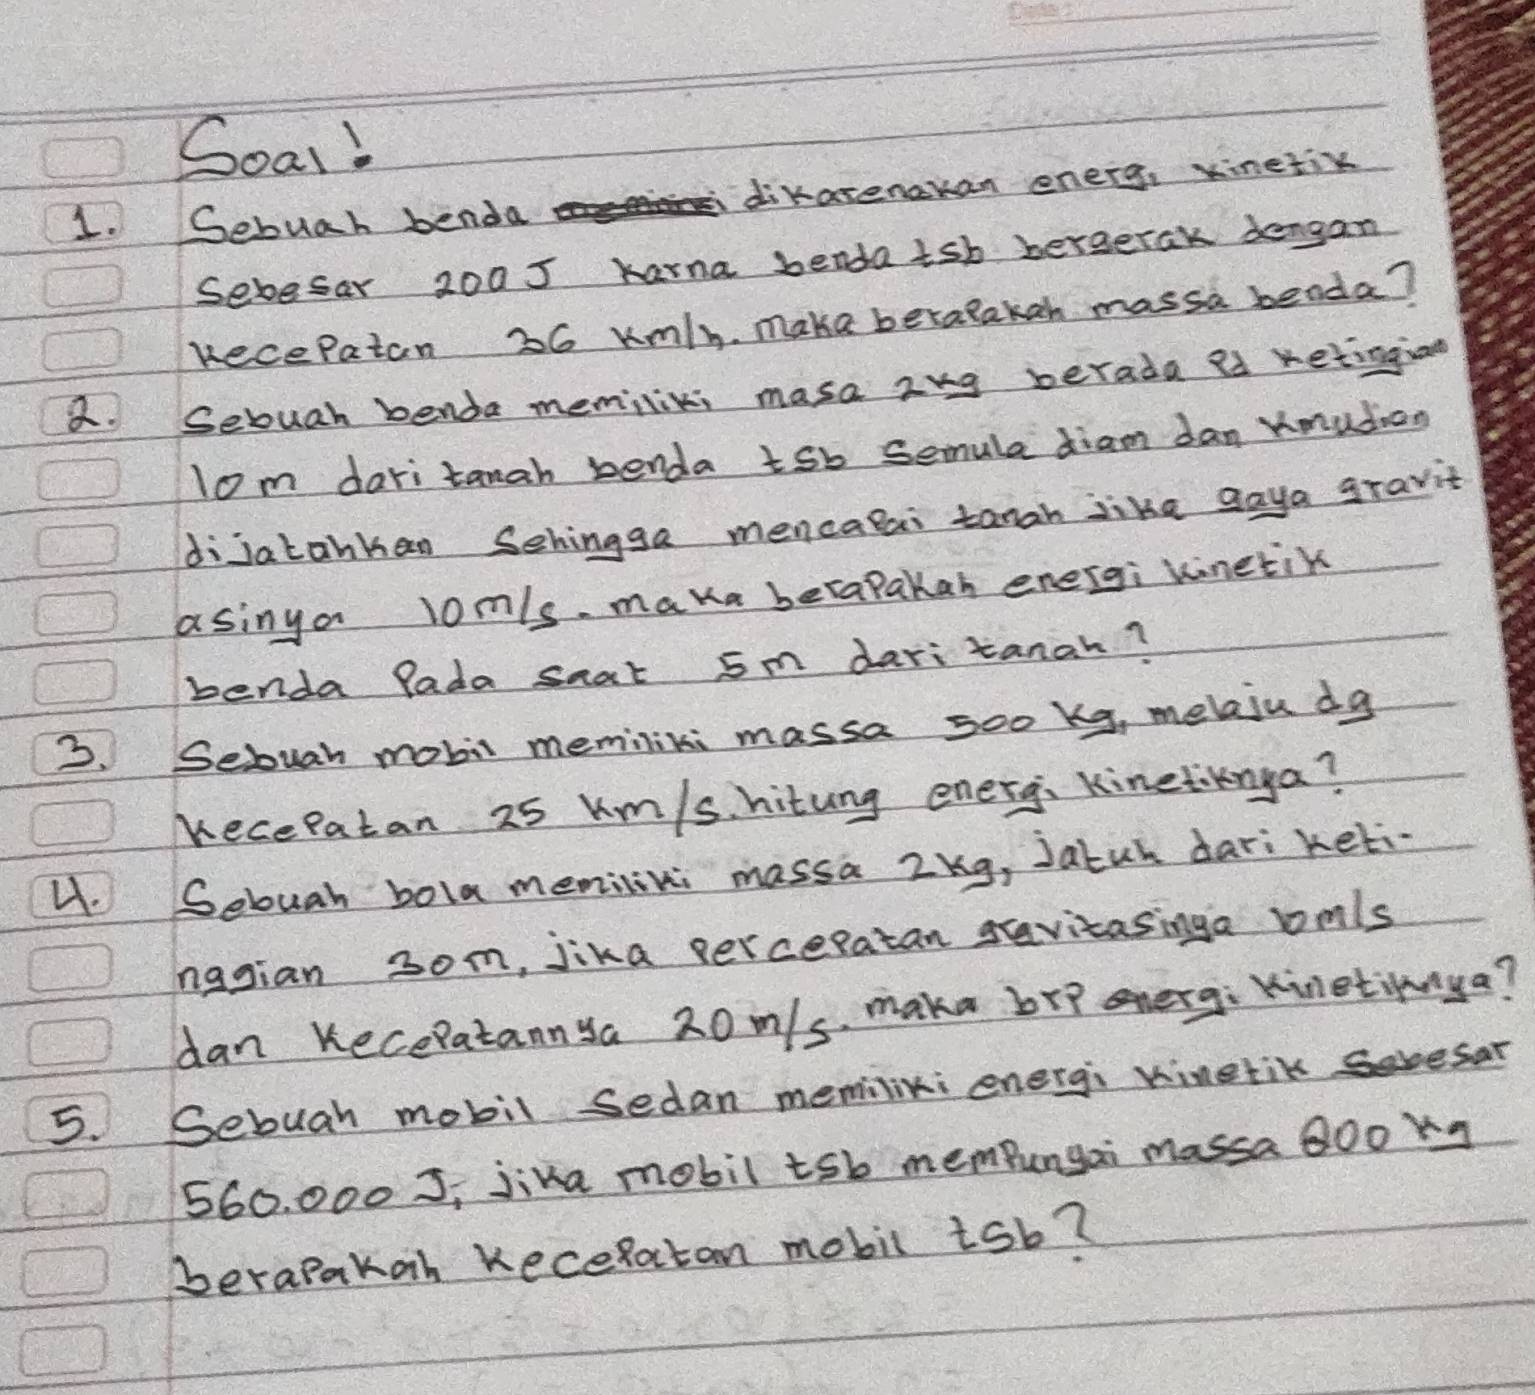 Soal!
1. Sebuah benda dikarenakan energi kinetik
sebesar 200 J karna benda tsb bergerak dengan
kecepatan 36 km/h. maka berapakah massa benda?
2. Sebuah benda memiliki masa 2kg berada pd ketingian
10 m dari tanah benda tsb semula diam dan kmudian
dijatahkan sehingga mencapai tanah jika gaya gravit
asinya 10 m/s. maka berapakah energi kinetik
benda pada saat 5 m dari tanah?
3. Sebuah mobil memiliki massa 500 kg, melaju dg
kecepatan 25 km/s. hitung energi kinetiknya?
4. Sebuah bola memiliki massa 2kg, jatuh dari keti-
nggian 30m, jika percepatan gravitasinya 10m/s
dan kecepatannya 20 m/s. maka brp energi kinetiknya?
5. Sebuah mobil sedan memiliki energi kinetik sebesar
560.000 J, jika mobil tsb mempunyai massa 800 kg
berapakah kecepatan mobil tsb?